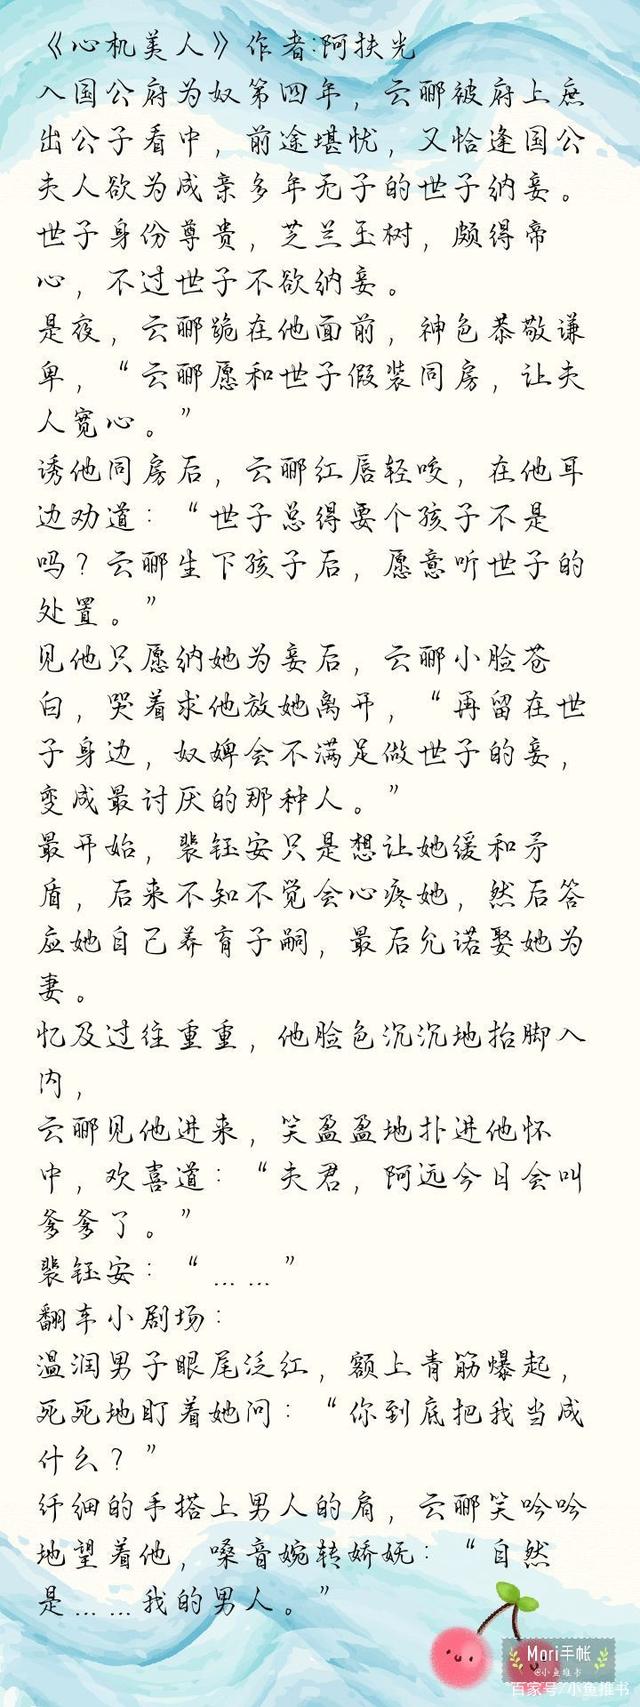 《心机美人》作者:阿扶光
入国公府为奴第四年，云郦被府上庶
出公子看中，前途堪忧，又恰逢国公
夫人欲为成亲多年无子的世子纳妾。
世子身份尊贵，芝兰玉树，颇得帝
心，不过世子不欲纳妾。
是夜，云郦跪在他面前，神色恭敬谦
卑，“云郦愿和世子假装同房，让夫
人宽心。”
诱他同房后，云郦红唇轻咬，在他耳
边劝道：“世子总得要个孩子不是
吗？云郦生下孩子后，愿意听世子的
处置。”
见他只愿纳她为妾后，云郦小脸苍
白，哭着求他放她离开，“再留在世
子身边，奴婢会不满足做世子的妾，
变成最讨厌的那种人。”
最开始，裴钰安只是想让她缓和矛
盾，后来不知不觉会心疼她，然后答
应她自己养育子嗣，最后允诺娶她为
妻。
忆及过往重重，他脸色沉沉地抬脚入
内，
云郦见他进来，笑盈盈地扑进他怀
中，欢喜道：“夫君，阿远今日会叫
爹爹了。”
裴钰安：“……”
翻车小剧场：
温润男子眼尾泛红，额上青筋爆起，
死死地盯着她问：“你到底把我当成
什么？”
纤细的手搭上男人的肩，云郦笑吟吟
地望着他，嗓音婉转娇妩：“自然
是……我的男人。”
Mori手帐
@小鱼推书
百家号/小鱼推书